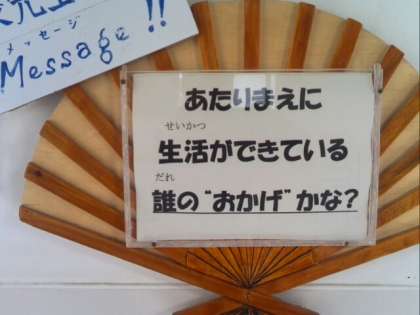 メッセージ
Message!!
あたりまえに
せいかつ
生活ができている
だれ
誰の“おかげ”かな?